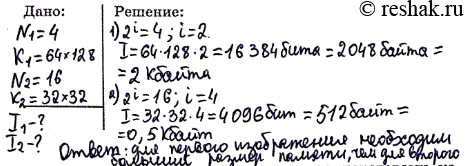 © reshak.ru
Дано:
N₁=4
K₁=64×128
N₂=16
K₂=32×32
I₁-?
I₂-?
Решение:
1) 2i=4; i=2.
I=64·128·2=16 384 бита=2048 байта=
=2 Кбайта
2) 2i=16; i=4
I=32·32·4=4096 бит=512 байт=
=0,5 Кбайт
Ответ: для первого изображения необходим
больший размер памяти, чем для второго